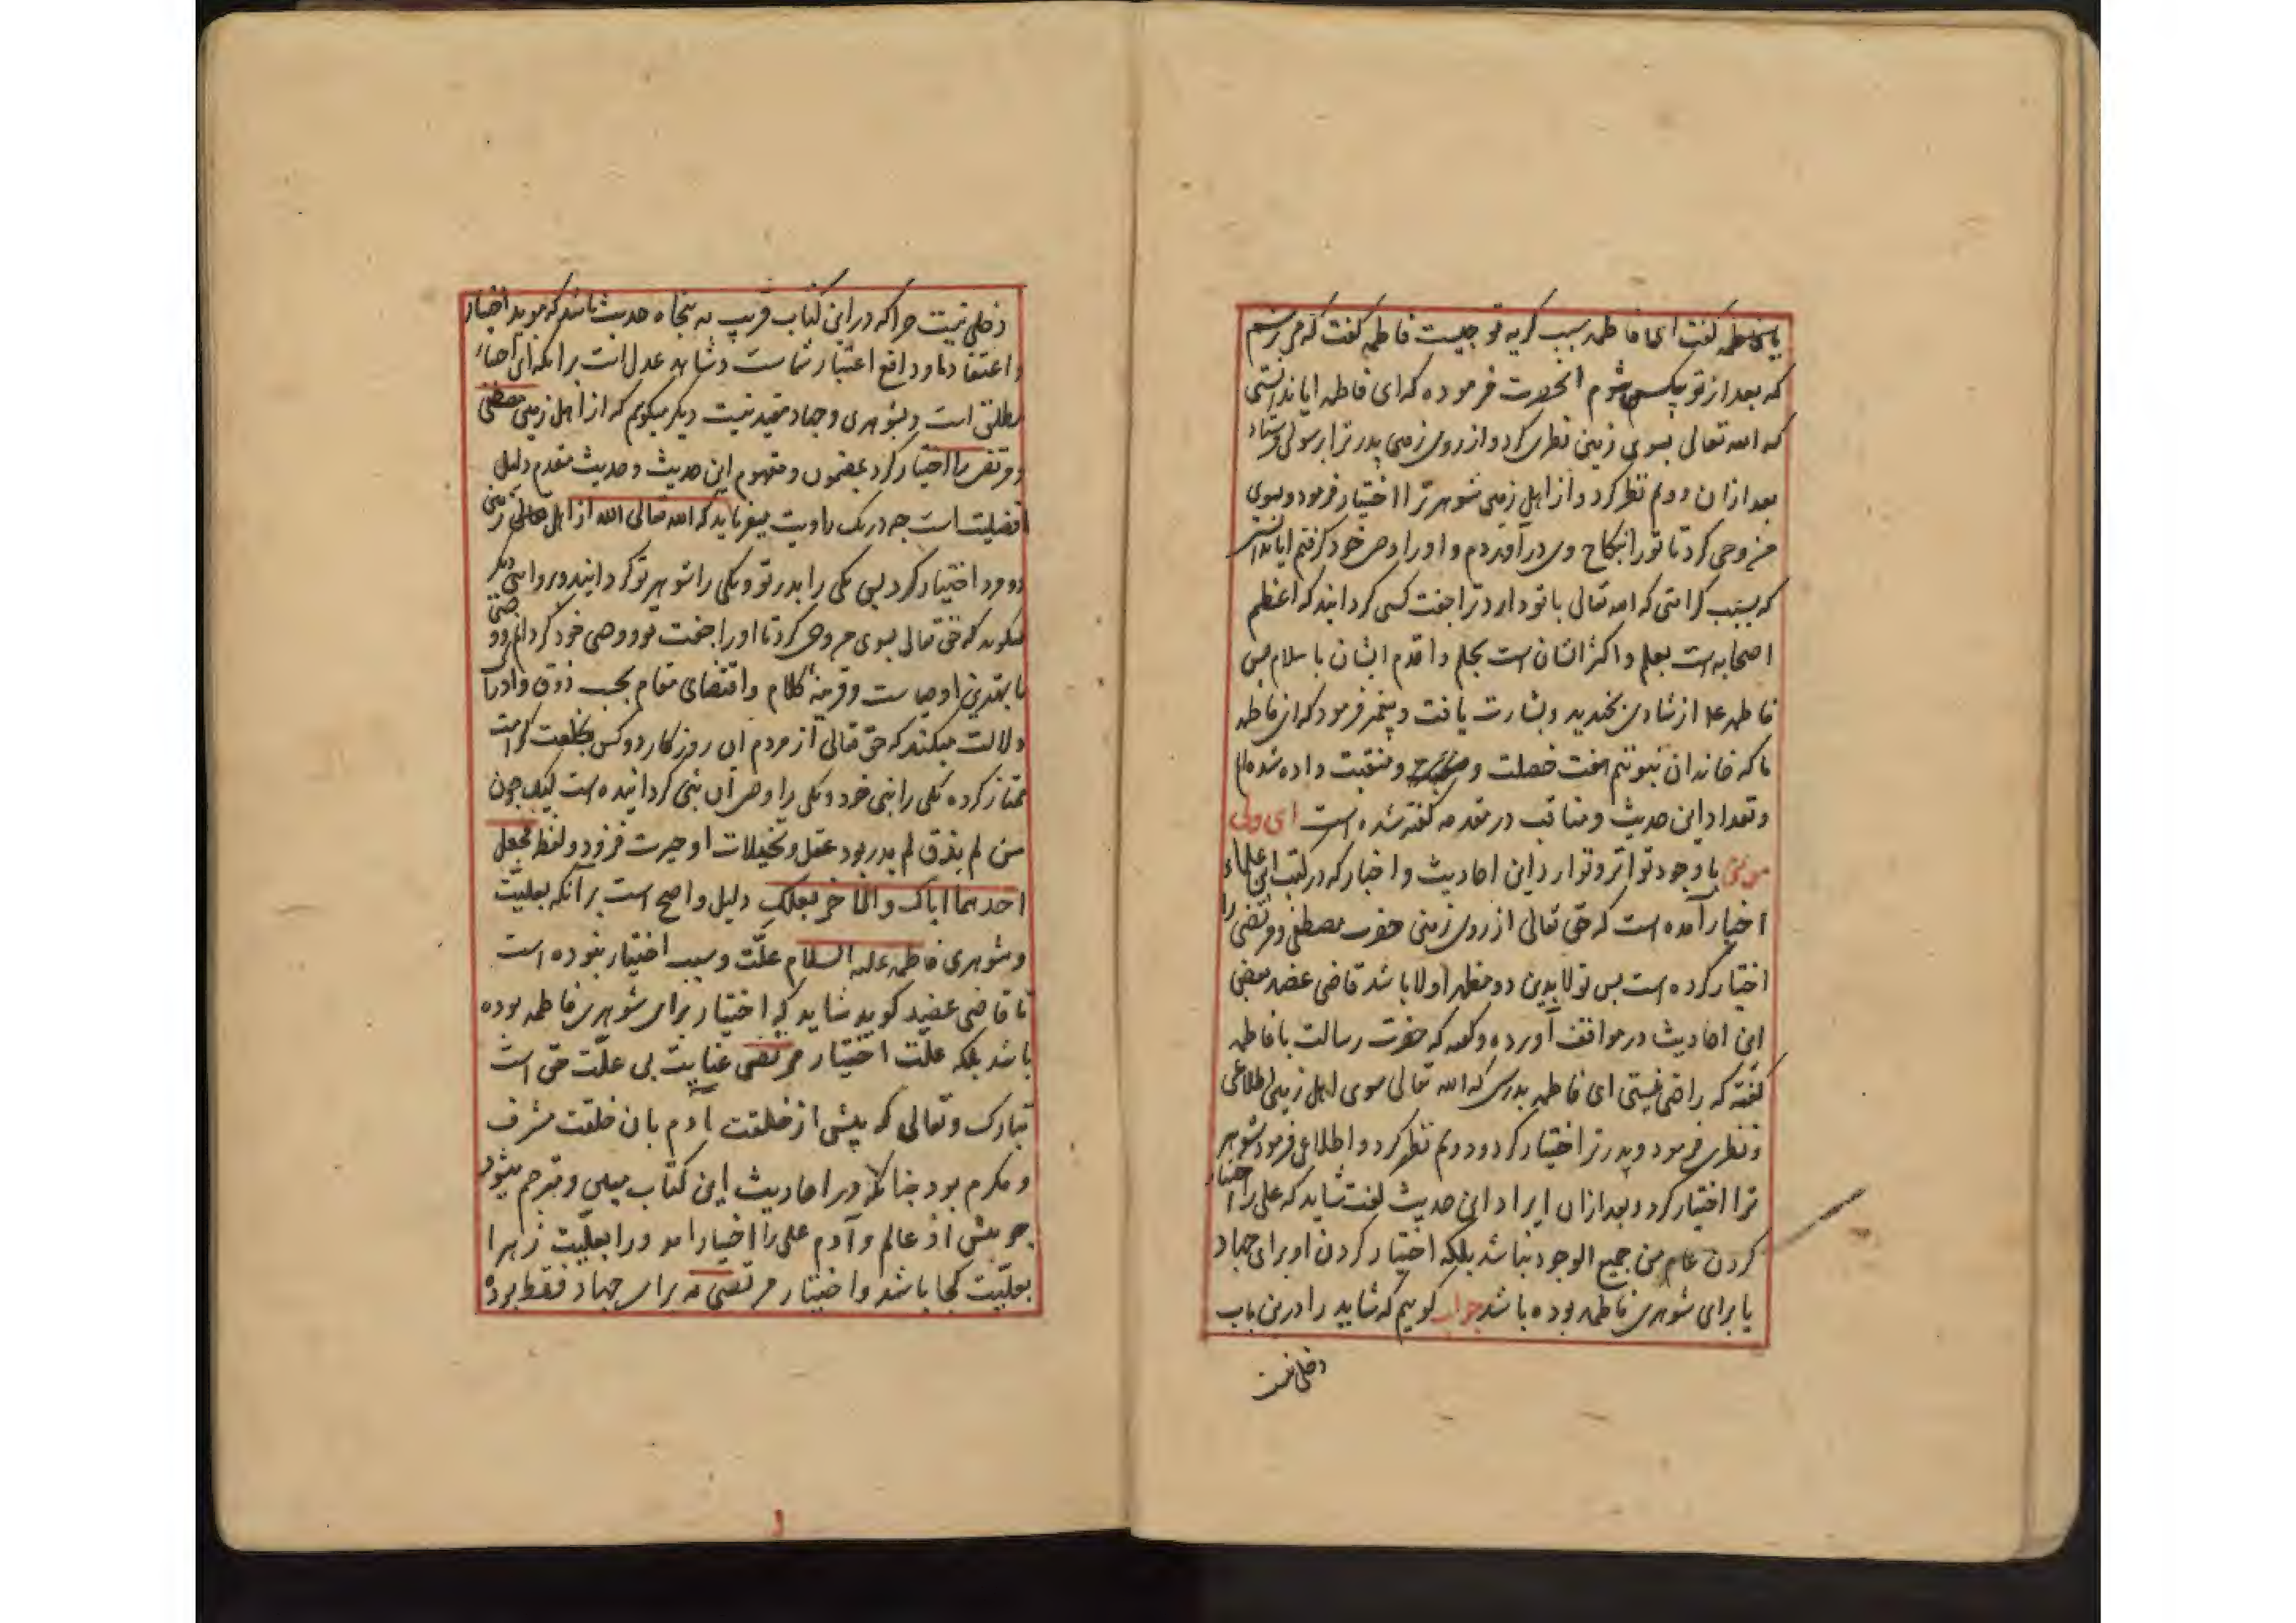 با فاطمه گفت ای فاطمه سبب گریه تو چیست فاطمه گفت که می ترسم
که بعد از تو بیکس شوم انحضرت فرموده که ای فاطمه ایا ندانستی
که الله تعالی بسوی زمین نظری کرد و از روی زمین پدر ترا برسولی فرستاد
بعد ازان دویم نظر کرد و از اهل زمین شوهر ترا اختیار فرمود و بسوی
من وحی کرد تا تو را بنکاح وی در آوردم و او را وصی خود کرفتم ایا ندانستی
که بسبب کرامتی که الله تعالی با تو دارد ترا جفت کسی کردانید که اعظم
اصحابه است بعلم و اکثر ایشان است بحلم و اقدم ایشان باسلام پس
فاطمه ع از شادی بخندید و بشارت یافت و پیغمبر فرمود که ای فاطمه
ما که خاندان نبوتیم هفت خصلت و منقبت داده شده ایم
و تعداد این حدیث و مناقب در مقدمه گفته شده است ای ولی
من با وجود تواتر و توارد این احادیث و اخبار که در کتب این علماء
اخبار آمده است که حق تعالی از روی زمین حضرت مصطفی و مرتضی را
اختیار کرده است پس تولا بدین دو مظهر اولا باشد قاضی عضد بعضی
این احادیث در مواقف آورده و گفته که حضرت رسالت با فاطمه
گفته که راضی نیستی ای فاطمه بدرستی که الله تعالی سوی اهل زمین اطلاعی
و نظری فرمود و پدر ترا اختیار کرد و دویم نظر کرد و اطلاعی فرمود شوهر
ترا اختیار کرد و بعد ازان ایراد این حدیث گفت شاید که علی را اختیار
کردن عام من جمیع الوجود نباشد بلکه اختیار کردن او برای جهاد
یا برای شوهری فاطمه بوده باشد جواب کوییم که شاید را درین باب
دخلی نیست
دخلی نیست چرا که در این کتاب قریب به پنجاه حدیث باشد که موید اخبار
و اعتقاد ما و دافع اعتبار شماست و شاهد عدل است برانکه این اختیار
مطلق است و بشوهری و جهاد مقید نیست دیگر میکویم که از اهل زمین مصطفی
و مرتضی را اختیار کرد بمضمون و مفهوم این حدیث و حدیث متقدم دلیل
افضلیت است چه در یک روایت میفرماید که الله تعالی از اهل زمین
دو مرد اختیار کرد پس یکی را پدر تو و یکی را شوهر تو کردانید و روایتی دیگر
میکوید که حق تعالی بسوی من وحی کرد تا او را جفت تو و وصی خود کردانم و وصی
ما بهترین اوصیاست و قرینهٔ کلام و اقتضای مقام بحسب ذوق و ادراک
دلالت میکند که حق تعالی از مردم آن روزکار دو کس بخلعت کرامت
ممتاز کرده یکی را نبی خود و یکی را وصی آن نبی کردانیده است لیکن چون
من لم یذق لم یدر بود عقل و تخیلات او حیرت فزود و لفظ فجعل
احدهما اباک و الآخر بعلک دلیل واضح است بر آنکه بعلیّت
و شوهری فاطمه علیه السلام علّت و سبب اختیار نبوده است
تا قاضی عضد کوید شاید که اختیار برای شوهری فاطمه بوده
باشد بلکه علّت اختیار مرتضی عنایت بی علّت حق است
تبارک و تعالی که پیش از خلقت آدم بان خلقت مشرف
و مکرم بود چنانکه در احادیث این کتاب مبیّن و مترجم میشود
چو پیش از عالم و آدم علی را اختیار آمد ورا بعلّیت زهرا
بعلّیت کجا باشد و اختیار مرتضی نه برای جهاد فقط بوده